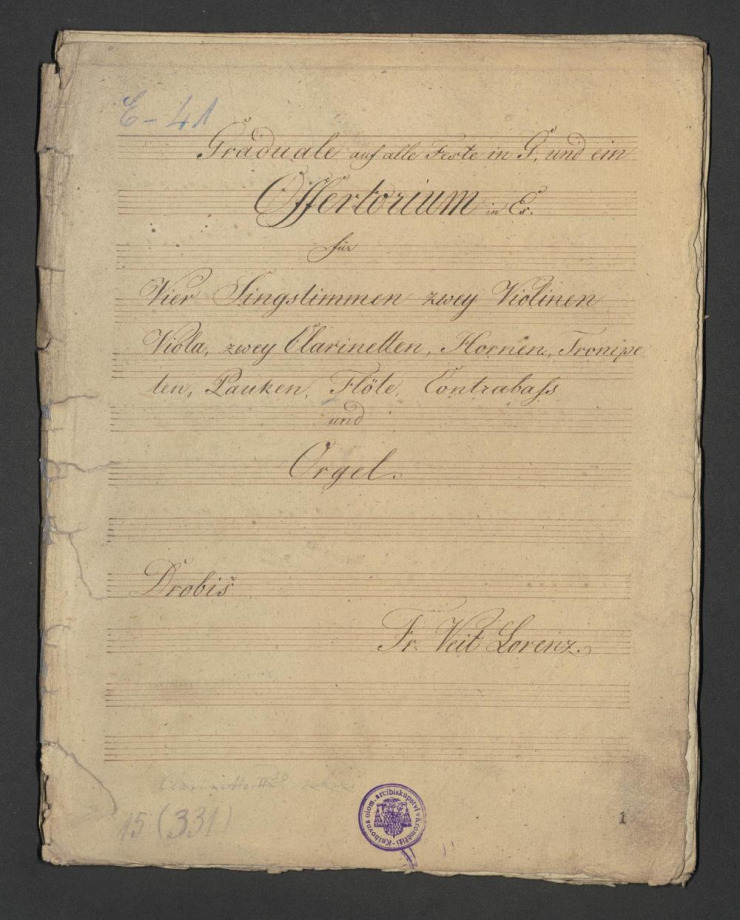 E-41
Graduale auf alle Feste in G, und ein
Offertorium in Es.
für
Vier Singstimmen zwey Violinen
Viola, zwey Clarinetten, Hornen, Trompe
ten, Pauken, Flöte, Contrabaſs
und
Orgel.
Drobiš
Fr. Veit Lorenz.
15 (331)
Knihovna olom. arcibiskupství v Kroměříži
1